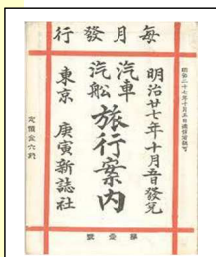 行發月每
明治廿七年十月五日發兌
汽車
汽船
旅行案內
東京 庚寅新誌社
定價金六錢